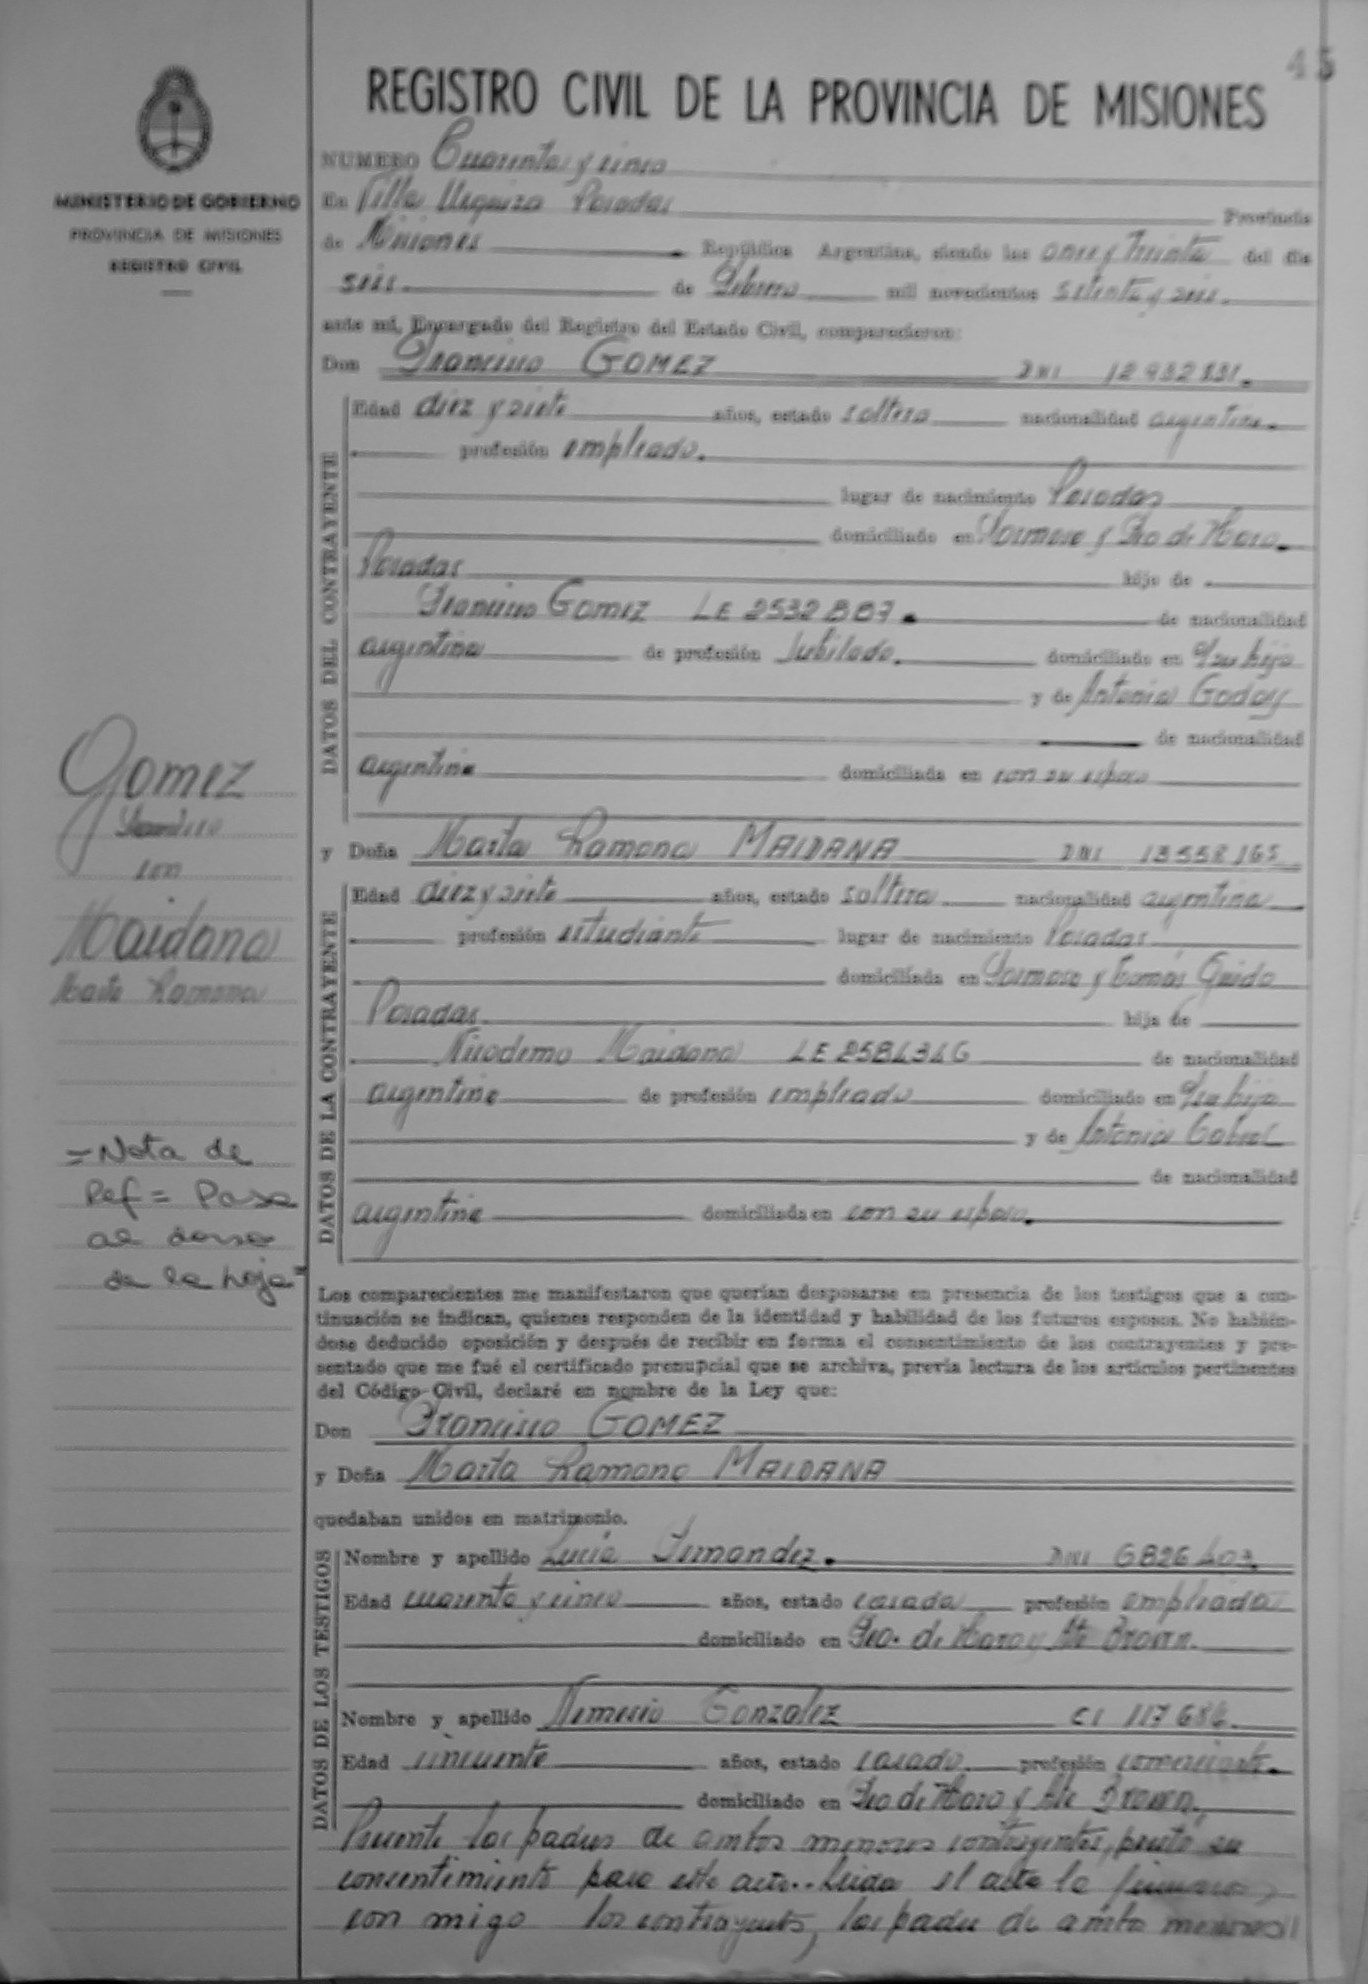 45
REGISTRO CIVIL DE LA PROVINCIA DE MISIONES
MINISTERIO DE GOBIERNO
PROVINCIA DE MISIONES
REGISTRO CIVIL
NUMERO Cuarenta y cinco
En Villa Urquiza Posadas Provincia
de Misiones República Argentina, siendo las once y treinta del día
seis de Febrero mil novecientos setenta y seis.
ante mí, Encargado del Registro del Estado Civil, comparecieron:
Don Francisco GOMEZ DNI
DATOS DEL CONTRAYENTE
Edad diez y siete años, estado soltero nacionalidad argentina
profesión empleado.
lugar de nacimiento Posadas
domiciliado en Formosa y Fco de Haro.
Posadas hijo de
Francisco Gomez LE
de nacionalidad
argentina de profesión Jubilado. domiciliado en c/su hijo
y de Antonia Godoy
de nacionalidad
argentina domiciliada en con su esposo
y Doña Marta Ramona MAIDANA DNI 13558165
DATOS DE LA CONTRAYENTE
Edad diez y siete años, estado soltera nacionalidad argentina
profesión estudiante lugar de nacimiento Posadas
domiciliada en Formosa y Tomás Guido
Posadas hija de
Nicodemo Maidana LE
de nacionalidad
argentina de profesión empleado domiciliado en c/su hija
y de Antonia
de nacionalidad
argentina domiciliada en con su esposo.
Gomez
Francisco
con
Maidana
Marta Ramona
=Nota de
Ref= Pasa
al dorso
de la hoja=
Los comparecientes me manifestaron que querían desposarse en presencia de los testigos que a con-
tinuación se indican, quienes responden de la identidad y habilidad de los futuros esposos. No habién-
dose deducido oposición y después de recibir en forma el consentimiento de los contrayentes y pre-
sentado que me fué el certificado prenupcial que se archiva, previa lectura de los artículos pertinentes
del Código Civil, declaré en nombre de la Ley que:
Don Francisco GOMEZ
y Doña Marta Ramona MAIDANA
quedaban unidos en matrimonio.
DATOS DE LOS TESTIGOS
Nombre y apellido Lucia Fernandez. DNI
Edad cuarenta y cinco años, estado casada profesión empleada
domiciliado en Fco. de Haro y Alte Brown.
Nombre y apellido Nemesio Gonzalez CI
Edad cincuenta años, estado casado profesión comerciante.
domiciliado en Fco de Haro y Alte Brown.
Presente los padres de ambos menores contrayentes, presto su
consentimiento para este acto.. Leida el acta la
con migo los contrayents, los padre de ambos menores